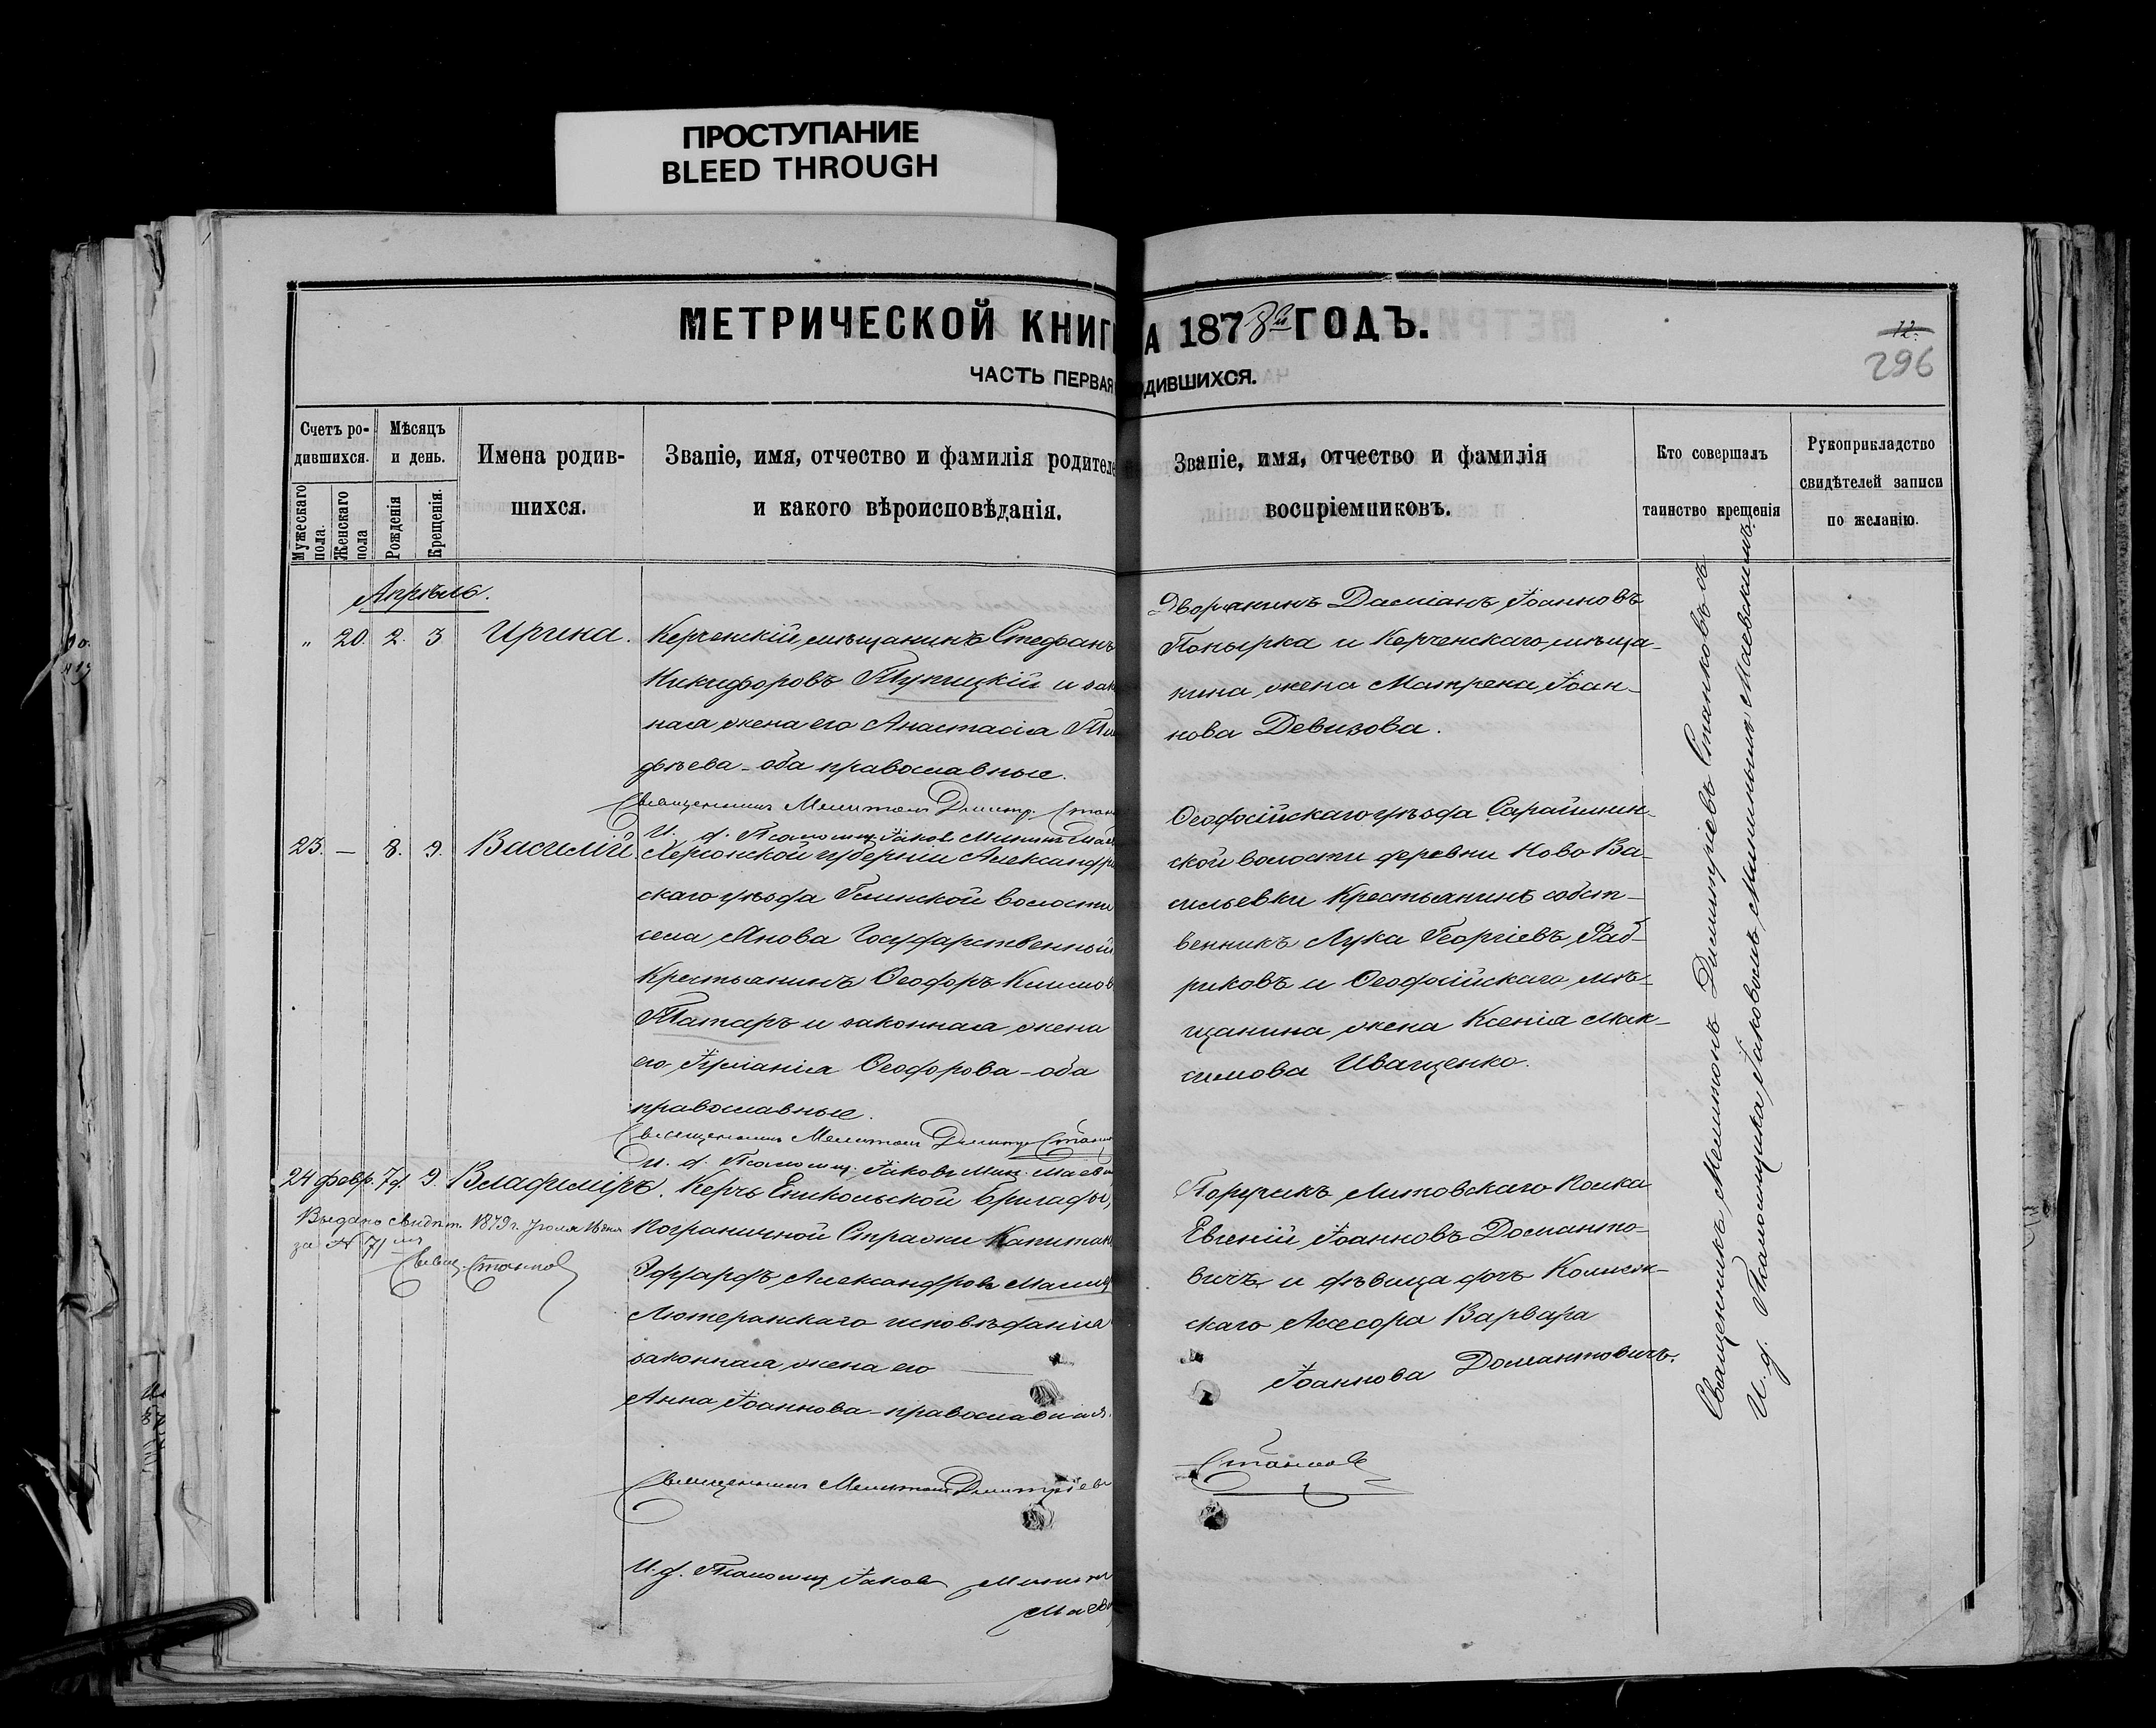 ПРОСТУПАНИЕ
BLEED THROUGH
МЕТРИЧЕСКОЙ КНИГ А 1878й ГОДЪ.
ЧАСТЬ ПЕРВАЯ ДИВШИХСЯ.
12.
296
Счетъ ро-
дившихся.
Мужескаго пола.
Женскаго пола
Мѣсяцъ
и день.
Рожденія
Крещенія.
Имена родив-
шихся.
Званіе, имя, отчество и фамилія родителе
и какого вѣроисповѣданія.
Званіе, имя, отчество и фамилія
воспріемниковъ.
Кто совершалъ
таинство крещенія
Рукоприкладство
свидѣтелей записи
по желанію.
Апрѣль.
„ 20. 2. 3 Ирина.
Керченскій мѣщанинъ Стефанъ
Никифоровъ Тупицкій и зак
ная жена его Анастасія Ти
фѣева - оба православные.
Священникъ Мелитонъ Димитр. Станк
И. д. Псаломщ. Іаковъ Минин Мае
Дворянинъ Даміанъ Іоанновъ
Попырка и Керченскаго мѣща-
нина жена Матрена Іоан-
нова Девизова.
23. — 8. 9. Василій
Херсонской губерніи Александрі
скаго уѣзда Глинской волости
села Янова Государственный
Крестьянинъ Ѳеодоръ Климов
Татаръ и законная жена
его Ирманія Ѳеодорова - оба
православные.
Священникъ Мелитонъ Димитр Станк
И. д. Псаломщ. Іаковъ Мин. Маев
Ѳеодосійскаго уѣзда Сараймин-
ской волости деревни Ново Ва-
сильевки Крестьянинъ собст-
венникъ Лука Георгіевъ Фаб-
риковъ и Ѳеодосійскаго мѣ-
щанина жена Ксенія Мак-
симова Иващенко.
24 февр. 7д. 9. Владиміръ.
Выдано свидѣт. 1879 г. Іюля 16 дня
за № 71
Свящ. Станков
Керчь Еникольской бригады,
Пограничной Стражи Капитан
Эдуардъ Александровъ
Лютеранскаго исповѣданія
законная жена его —
Анна Іоаннова - православная.
Священникъ Мелитонъ Димитріевъ
И. д. Псаломщ Іаковъ Минин
Маев
Поручикъ Литовскаго Полка
Евгеній Іоанновъ Доманто-
вичъ и дѣвица дочь Коллеж-
скаго Асесора Варвара
Іоаннова Домантовичъ.
Станков
Священникъ Мелитонъ Димитріевъ Станковъ съ
И. д. Псаломщика Іаковомъ Мининымъ Маевскимъ.